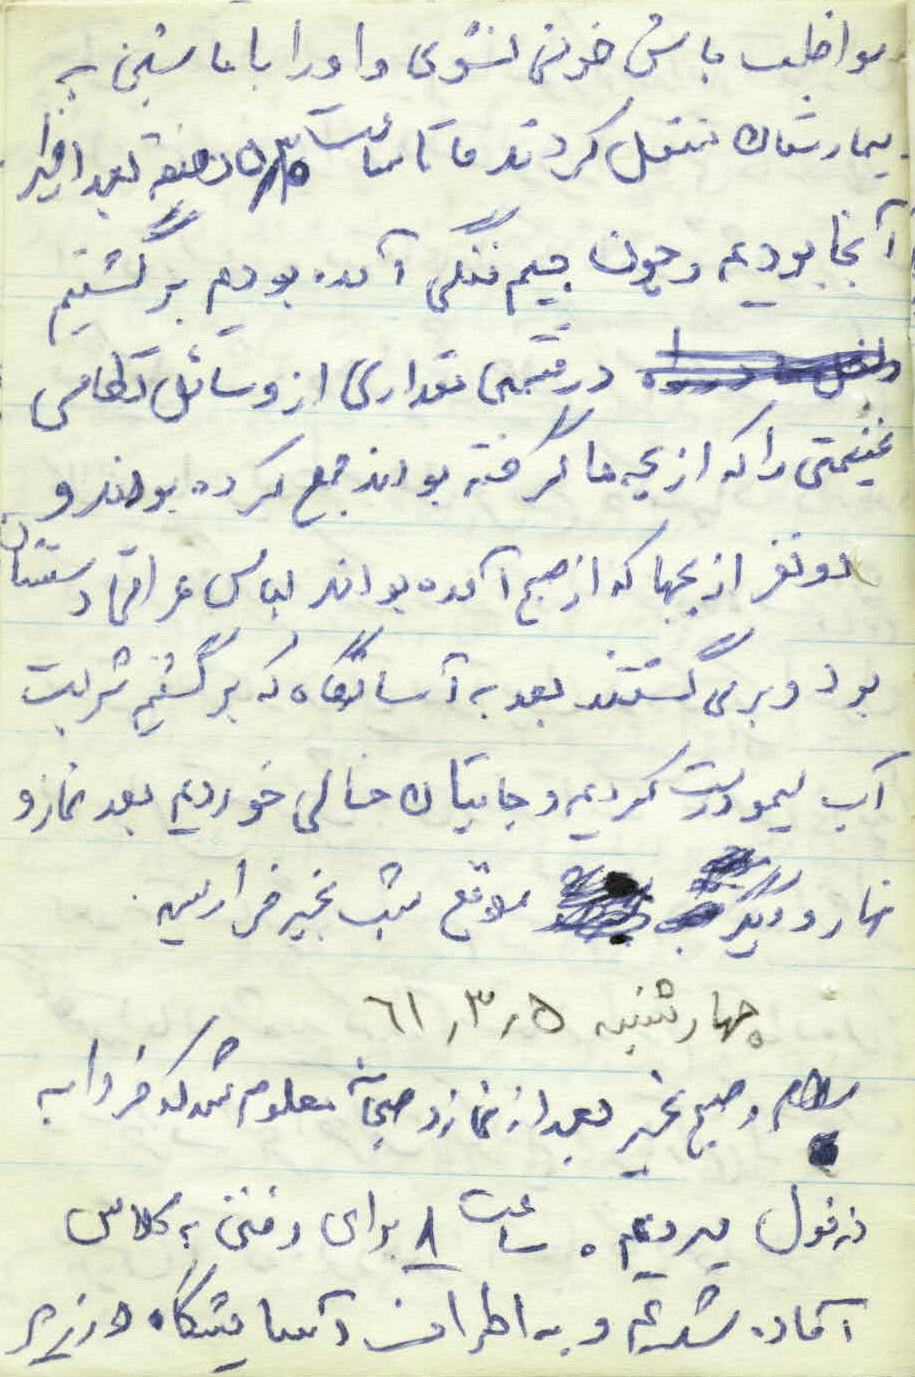 مواظب باش خونی نشوی و او را با ماشین به
بیمارستان منتقل کردند ما تا ساعت بعد از ظهر
آنجا بودیم و چون جیم فنگی آمده بودیم برگشتیم
در قسمتی مقداری از وسائل نظامی
غنیمتی را که از بچه ها گرفته بودند جمع کرده بودند و
دو نفر از بچها که از صبح آمده بودند لباس عراقی دستشان
بود و برمی گشتند بعد به آسایشگاه که برگشتیم شربت
آب لیمو درست کردیم و جایتان خالی خوردیم بعد نماز و
نهار و دیگر موقع شب بخیر فرا رسید.
چهارشنبه ۶۱٫۳٫۵
سلام و صبح بخیر بعد از نماز و صبحانه معلوم شد که فردا به
دزفول میرویم. ساعت ۸ برای رفتن به کلاس
آماده شدیم و به اطراف آسایشگاه در زیر